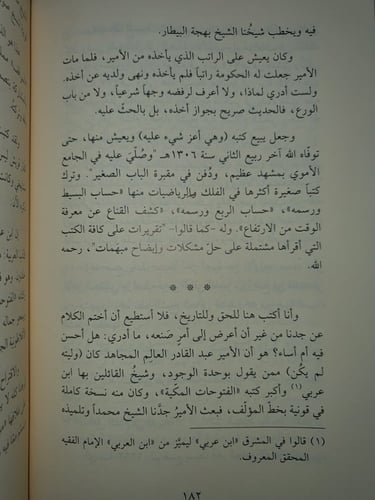 فيه ويخطب شيخُنا الشيخ بهجة البيطار.
وكان يعيش على الراتب الذي يأخذه من الأمير، فلما مات
الأمير جعلت له الحكومة راتباً فلم يأخذه ونهى ولديه عن أخذه.
ولست أدري لماذا، ولا أعرف لرفضه وجهاً شرعياً، ولا من باب
الورع، فالحديث صريح بجواز أخذه، بل بالحثّ عليه.
وجعل يبيع كتبه (وهي أعز شيء عليه) ويعيش منها، حتى
توفّاه الله آخر ربيع الثاني سنة ١٣٠٦هـ "وصُلّيَ عليه في الجامع
الأموي بمشهد عظيم، ودُفن في مقبرة الباب الصغير". وترك
كتباً صغيرة أكثرها في الفلك والرياضيات منها «حساب البسيط
ورسمه»، «حساب الربع ورسمه»، «كشف القناع عن معرفة
الوقت من الارتفاع». وله -كما قالوا- "تقريرات على كافة الكتب
التي أقرأها مشتملة على حلّ مشكلات وإيضاح مبهَمات"، رحمه
الله.
* * *
وأنا أكتب هنا للحق وللتاريخ، فلا أستطيع أن أختم الكلام
عن جدنا من غير أن أعرض إلى أمرٍ صَنعه، ما أدري: هل أحسن
فيه أم أساء؟ هو أن الأمير عبد القادر العالِم المجاهد كان (وليته
لم يكُن) ممن يقول بوحدة الوجود، وشيخُ القائلين بها ابن
عربي(١) وأكبر كتبه «الفتوحات المكية»، وكان منه نسخة كاملة
في قونية بخط المؤلّف، فبعث الأميرُ جدَّنا الشيخ محمداً وتلميذه
(١) قالوا في المشرق «ابن عربي» ليميَّز من «ابن العربي» الإمام الفقيه
المحقق المعروف.
١٨٢